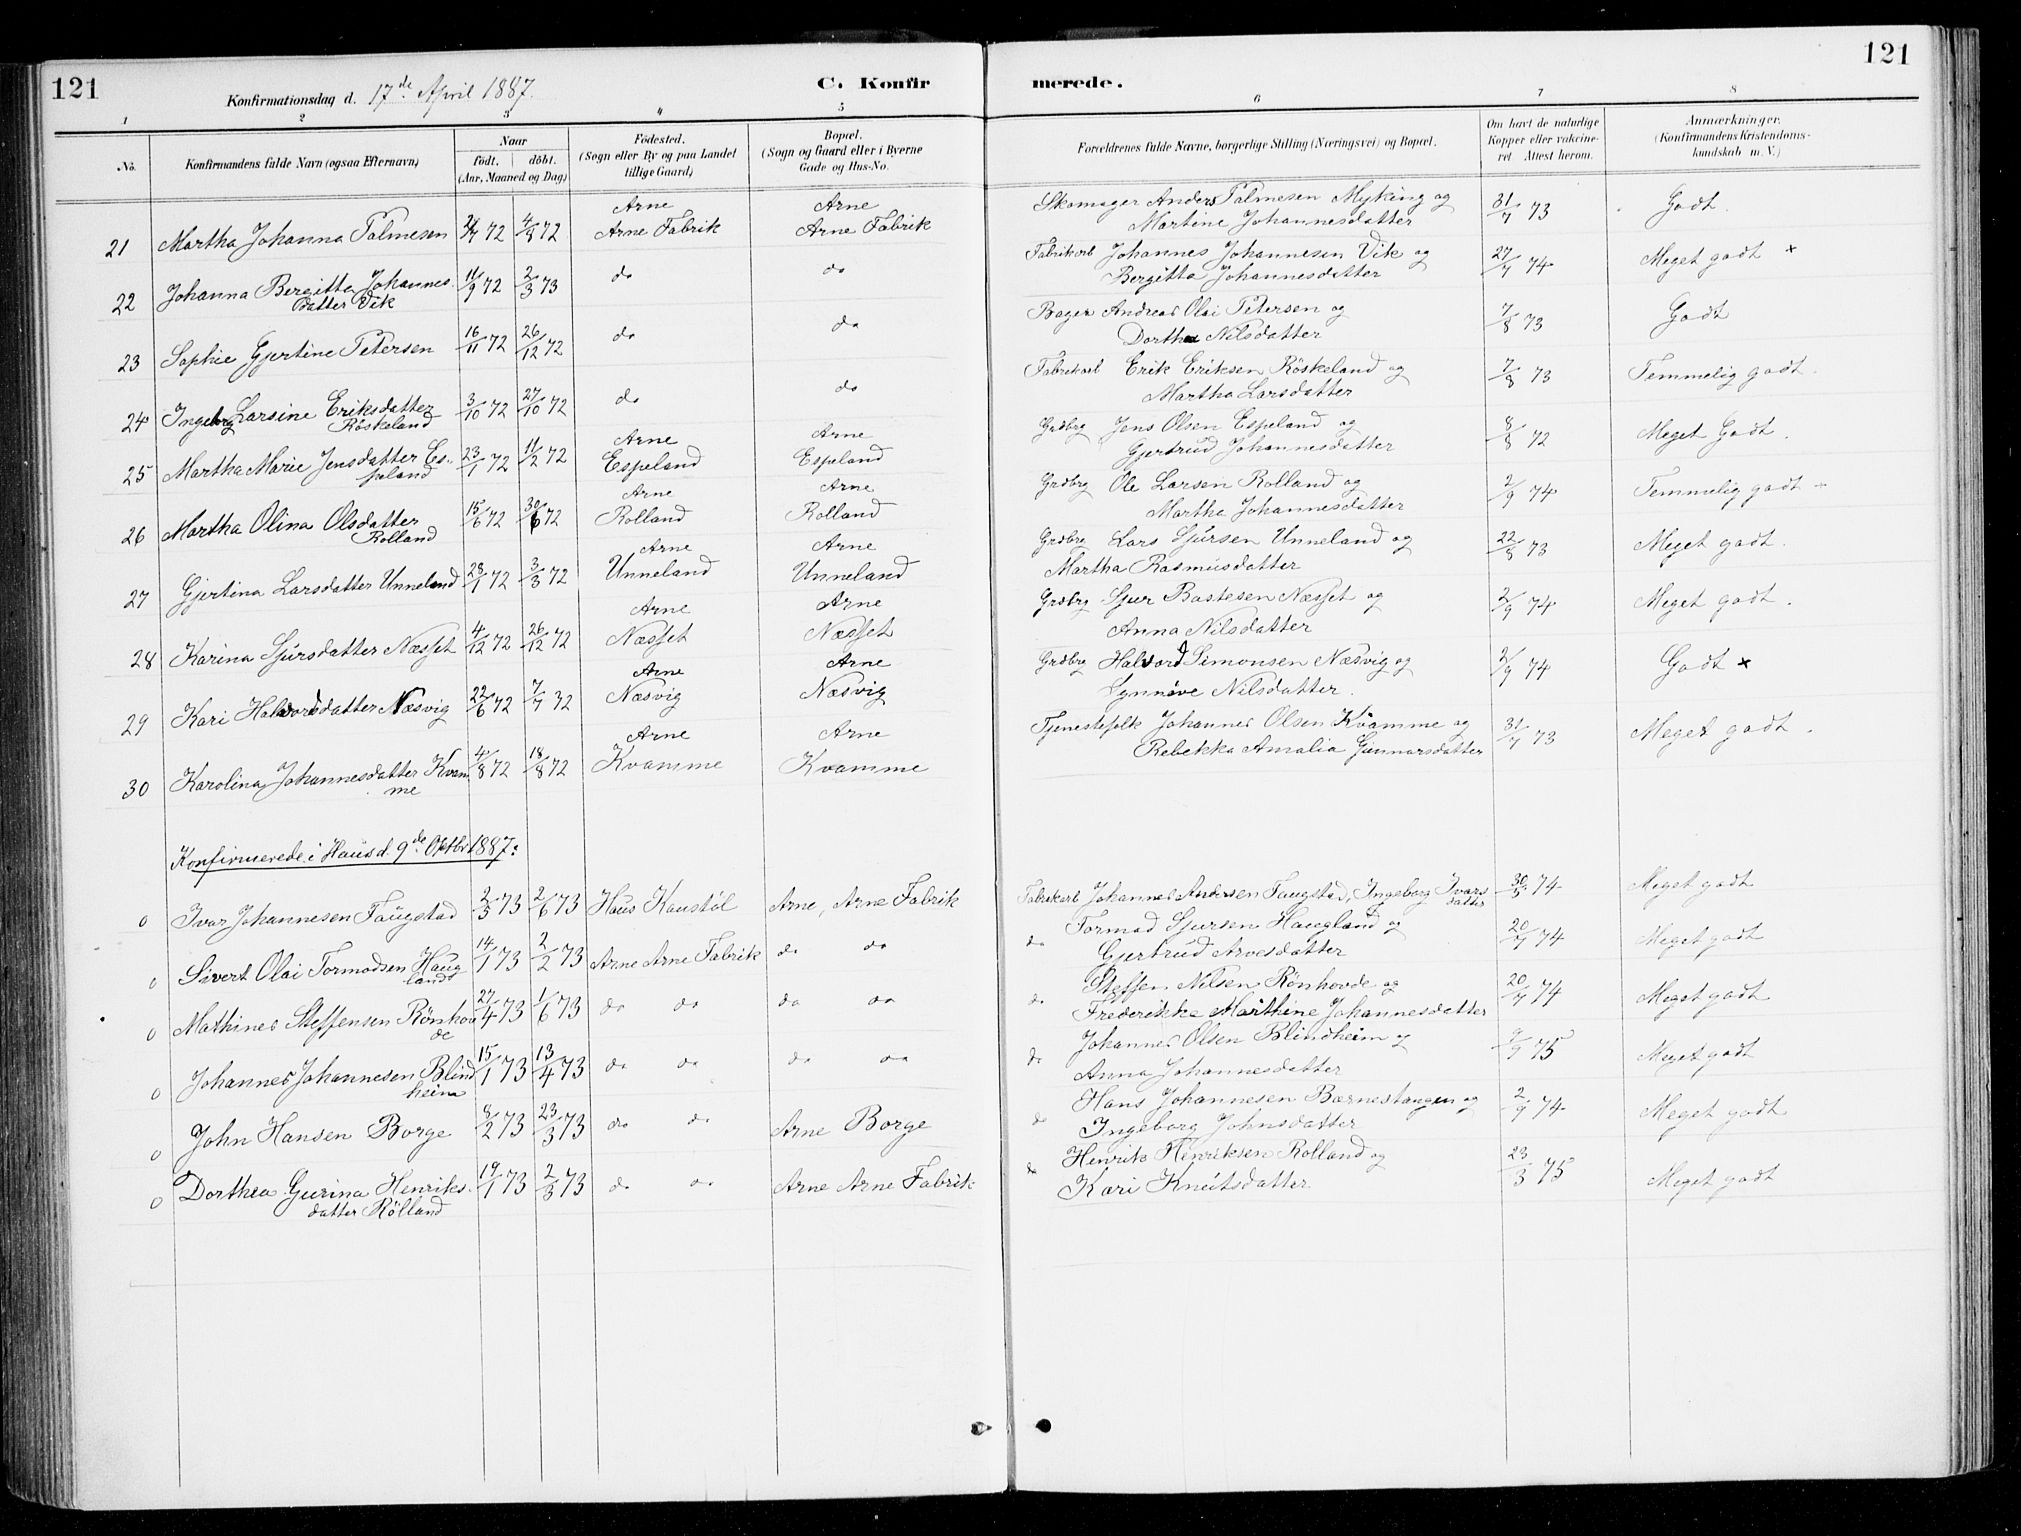 121
Konfirmationsdag d. 17de April 1887.
C. Konfir
merede.
121
1 2 3 4 5 6 7 8
No. Konfirmandens fulde Navn (ogsaa Efternavn) Naar födt. döbt. (Aar, Maaned og Dag) Födested. (Sogn eller By og paa Landet tillige Gaard) Bopæl. (Sogn og Gaard eller i Byerne Gade og Hus-No. Forældrenes fulde Navne, borgerlige Stilling (Næringsvei) og Bopæl. Om havt de naturlige Kopper eller vakcineret Attest herom. Anmærkninger. (Konfirmandens Kristendomskundskab m. V.)
Arne Arne Skomager Anders Palmesen Myking og 31/7 73 Godt.
21 Martha Johanna Palmesen /7 72 4/8 72 Arne Fabrik Arne Fabrik Martine Johannesdatter
22 Johanna Bergitta Johannes- 11/9 72 2/3 73 do do Fabrikarb Johannes Johannesen Vik og 27/7 74 Meget godt +
datter Vik Bergitta Johannesdatter
23 Sophie Gjertine Petersen 16/11 72 26/12 72 do do Bager Andreas Olai Petersen og 7/8 73 Godt
Dorthea Nilsdatter
24 Ingeborg Larsine Eriksdatter 3/10 72 27/10 72 do do Fabrikarb Erik Eriksen Röskeland og 7/8 73 Temmelig godt.
Röskeland Martha Larsdatter
Arne Arne Grdbrg Jens Olsen Espeland og 8/8 72 Meget Godt.
25 Martha Marie Jensdatter Es- 23/1 72 11/2 72 Espeland Espeland Gjertrud Johannesdatter
peland
Arne Arne Grdbrg Ole Larsen Rolland og 2/9 74 Temmelig godt
26 Martha Olina Olsdatter 15/6 72 30/6 72 Rolland Rolland Martha Johannesdatter
Rolland
Arne Arne Grdbrg Lars Sjursen Unneland og 22/8 73 Meget godt.
27 Gjertina Larsdatter Unneland 28/1 72 3/3 72 Unneland Unneland Martha Rasmusdatter
Arne Arne Grdbrg Sjur Bastesen Næsset og 2/9 74 Meget godt.
28 Karina Sjursdatter Næsset 4/12 72 26/12 72 Næsset Næsset Anna Nilsdatter
Arne Arne Grdbrg Halvord Simonsen Næsvig og 2/9 74 Godt +
29 Kari Halvordsdatter Næsvig 22/6 72 7/7 32 Næsvig Næsvig Synnöve Nilsdatter.
Arne Arne Tjenestefolk Johannes Olsen Kvamme og 31/7 73 Meget godt.
30 Karolina Johannesdatter Kvam 4/8 72 18/8 72 Kvamme Kvamme Rebekka Amalia Gunnarsdatter
me
Konfirmerede i Haus d. 9de Oktbr 1887:
0 Ivar Johannesen Taugstad 2/5 73 2/6 73 Haus Kaustöl Arne, Arne Fabrik Fabrikarb Johannes Andersen Taugstad, Ingeborg Ivars datter 30/5 74 Meget godt
0 Sivert Olai Tormodsen Haug 14/1 73 2/2 73 Arne Arne Fabrik do do do Tormod Sjursen Haugland og 20/7 74 Meget godt
land Gjertrud Arvesdatter
0 Mathines Steffensen Rönhov 27/4 73 1/6 73 do do do do do Steffen Nilsen Rönhovde og 20/7 74 Meget godt
de Frederikke Marthine Johannesdatter
0 Johannes Johannesen Blind 15/1 73 13/4 73 do do do do do Johannes Olsen Blindheim og 9/9 75 Meget godt
heim Anna Johannesdatter
0 John Hansen Borge 8/2 73 23/3 73 do do Arne Borge do Hans Johannesen Børnestangen og 2/9 74 Meget godt
Ingeborg Johnsdatter
0 Dorthea Gurina Henriks- 19/1 73 2/3 73 do do Arne Arne Fabrik do Henrik Henriksen Rolland og 23/3 75 Meget godt
datter Rölland Kari Knutsdatter